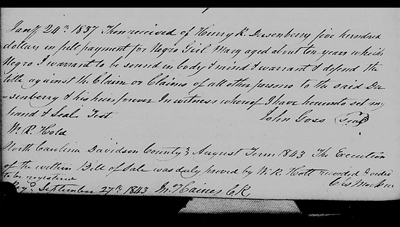 Jany 24th 1837. Then received of Henry R. Dusenberry five hundred
dollars in full payment for Negro Girl Mary aged about ten years which
Negro I warrant to be sound in body & mind & warrant & defend the
title against the Claim or Claims of all other persons to the said Du-
senberry & his heirs forever In witness whereof I have hereunto set my
hand & Seal Test John Goss
W. R. Holt
North Carolina Davidson County August Term 1843 The Execution
of the within Bill of Sale was duly proved by W. R. Holt recorded & order
to be registered
Regd. September 27th 1843